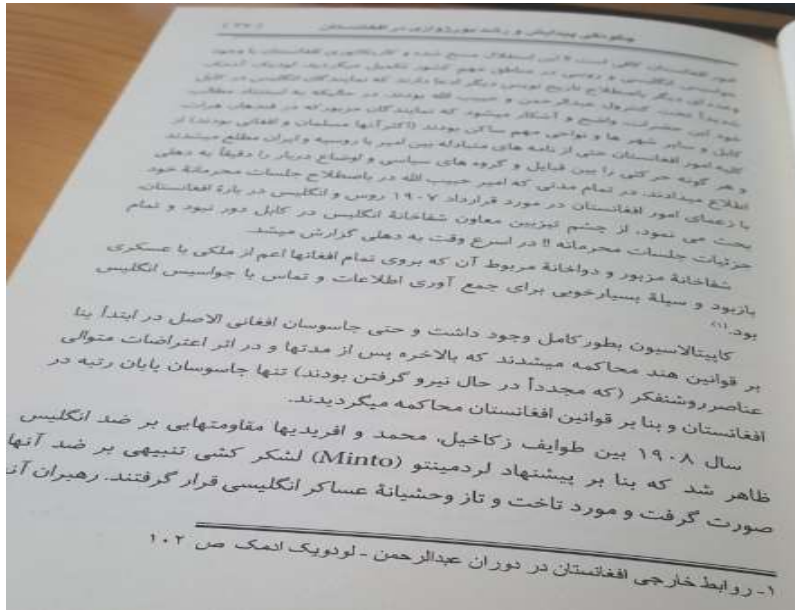 چگونگی پیدایش و رشد بورژوازی در افغانستان
امور افغانستان کافی است؟ این استقلال مسخ شده و کاریکاتوری افغانستان با وجود
جواسیس انگلیسی و روسی در مناطق مهم کشور تکمیل میگردید. لودویک ادمک
وعده ای دیگر باصطلاح تاریخ نویس دیگر ادعا دارند که نمایندگان انگلیس در کابل
شدیداً تحت کنترول عبدالرحمن و حبیب الله بودند. در حالیکه به استناد مطالب
خود این حضرات، واضح و آشکار میشود که نمایندگان مزبور که در قندهار، هرات،
کابل و سایر شهر ها و نواحی مهم ساکن بودند (اکثر آنها مسلمان و افغانی بودند) از
کلیه امور افغانستان حتی از نامه های متبادله بین امیر با روسیه و ایران مطلع میشدند
و هر گونه حرکتی را بین قبایل و گروه های سیاسی و اوضاع دربار را دقیقاً به دهلی
اطلاع میدادند. در تمام مدتی که امیر حبیب الله در باصطلاح جلسات محرمانهٔ خود
با زعمای امور افغانستان در مورد قرارداد ۱۹۰۷ روس و انگلیس در بارهٔ افغانستان،
بحث می نمود، از چشم تیزبین معاون شفاخانهٔ انگلیس در کابل دور نبود و تمام
جزئیات جلسات محرمانه!! در اسرع وقت به دهلی گزارش میشد.
شفاخانهٔ مزبور و دواخانهٔ مربوط آن که بروی تمام افغانها اعم از ملکی یا عسکری
بازبود و سیلهٔ بسیارخوبی برای جمع آوری اطلاعات و تماس با جواسیس انگلیس
بود.(۱)
کاپیتالاسیون بطور کامل وجود داشت و حتی جاسوسان افغانی الاصل در ابتدأ بنا
بر قوانین هند محاکمه میشدند که بالاخره پس از مدتها و در اثر اعتراضات متوالی
عناصر روشنفکر (که مجدداً در حال نیرو گرفتن بودند) تنها جاسوسان پایان رتبه در
افغانستان و بنا بر قوانین افغانستان محاکمه میگردیدند.
سال ۱۹۰۸ بین طوایف زکاخیل، محمد و افریدیها مقاومتهایی بر ضد انگلیس
ظاهر شد که بنا بر پیشنهاد لردمینتو (Minto) لشکر کشی تنبیهی بر ضد آنها
صورت گرفت و مورد تاخت و تاز وحشیانهٔ عساکر انگلیسی قرار گرفتند. رهبران
۱- روابط خارجی افغانستان در دوران عبدالرحمن - لودویک ادمک ص ۱۰۲